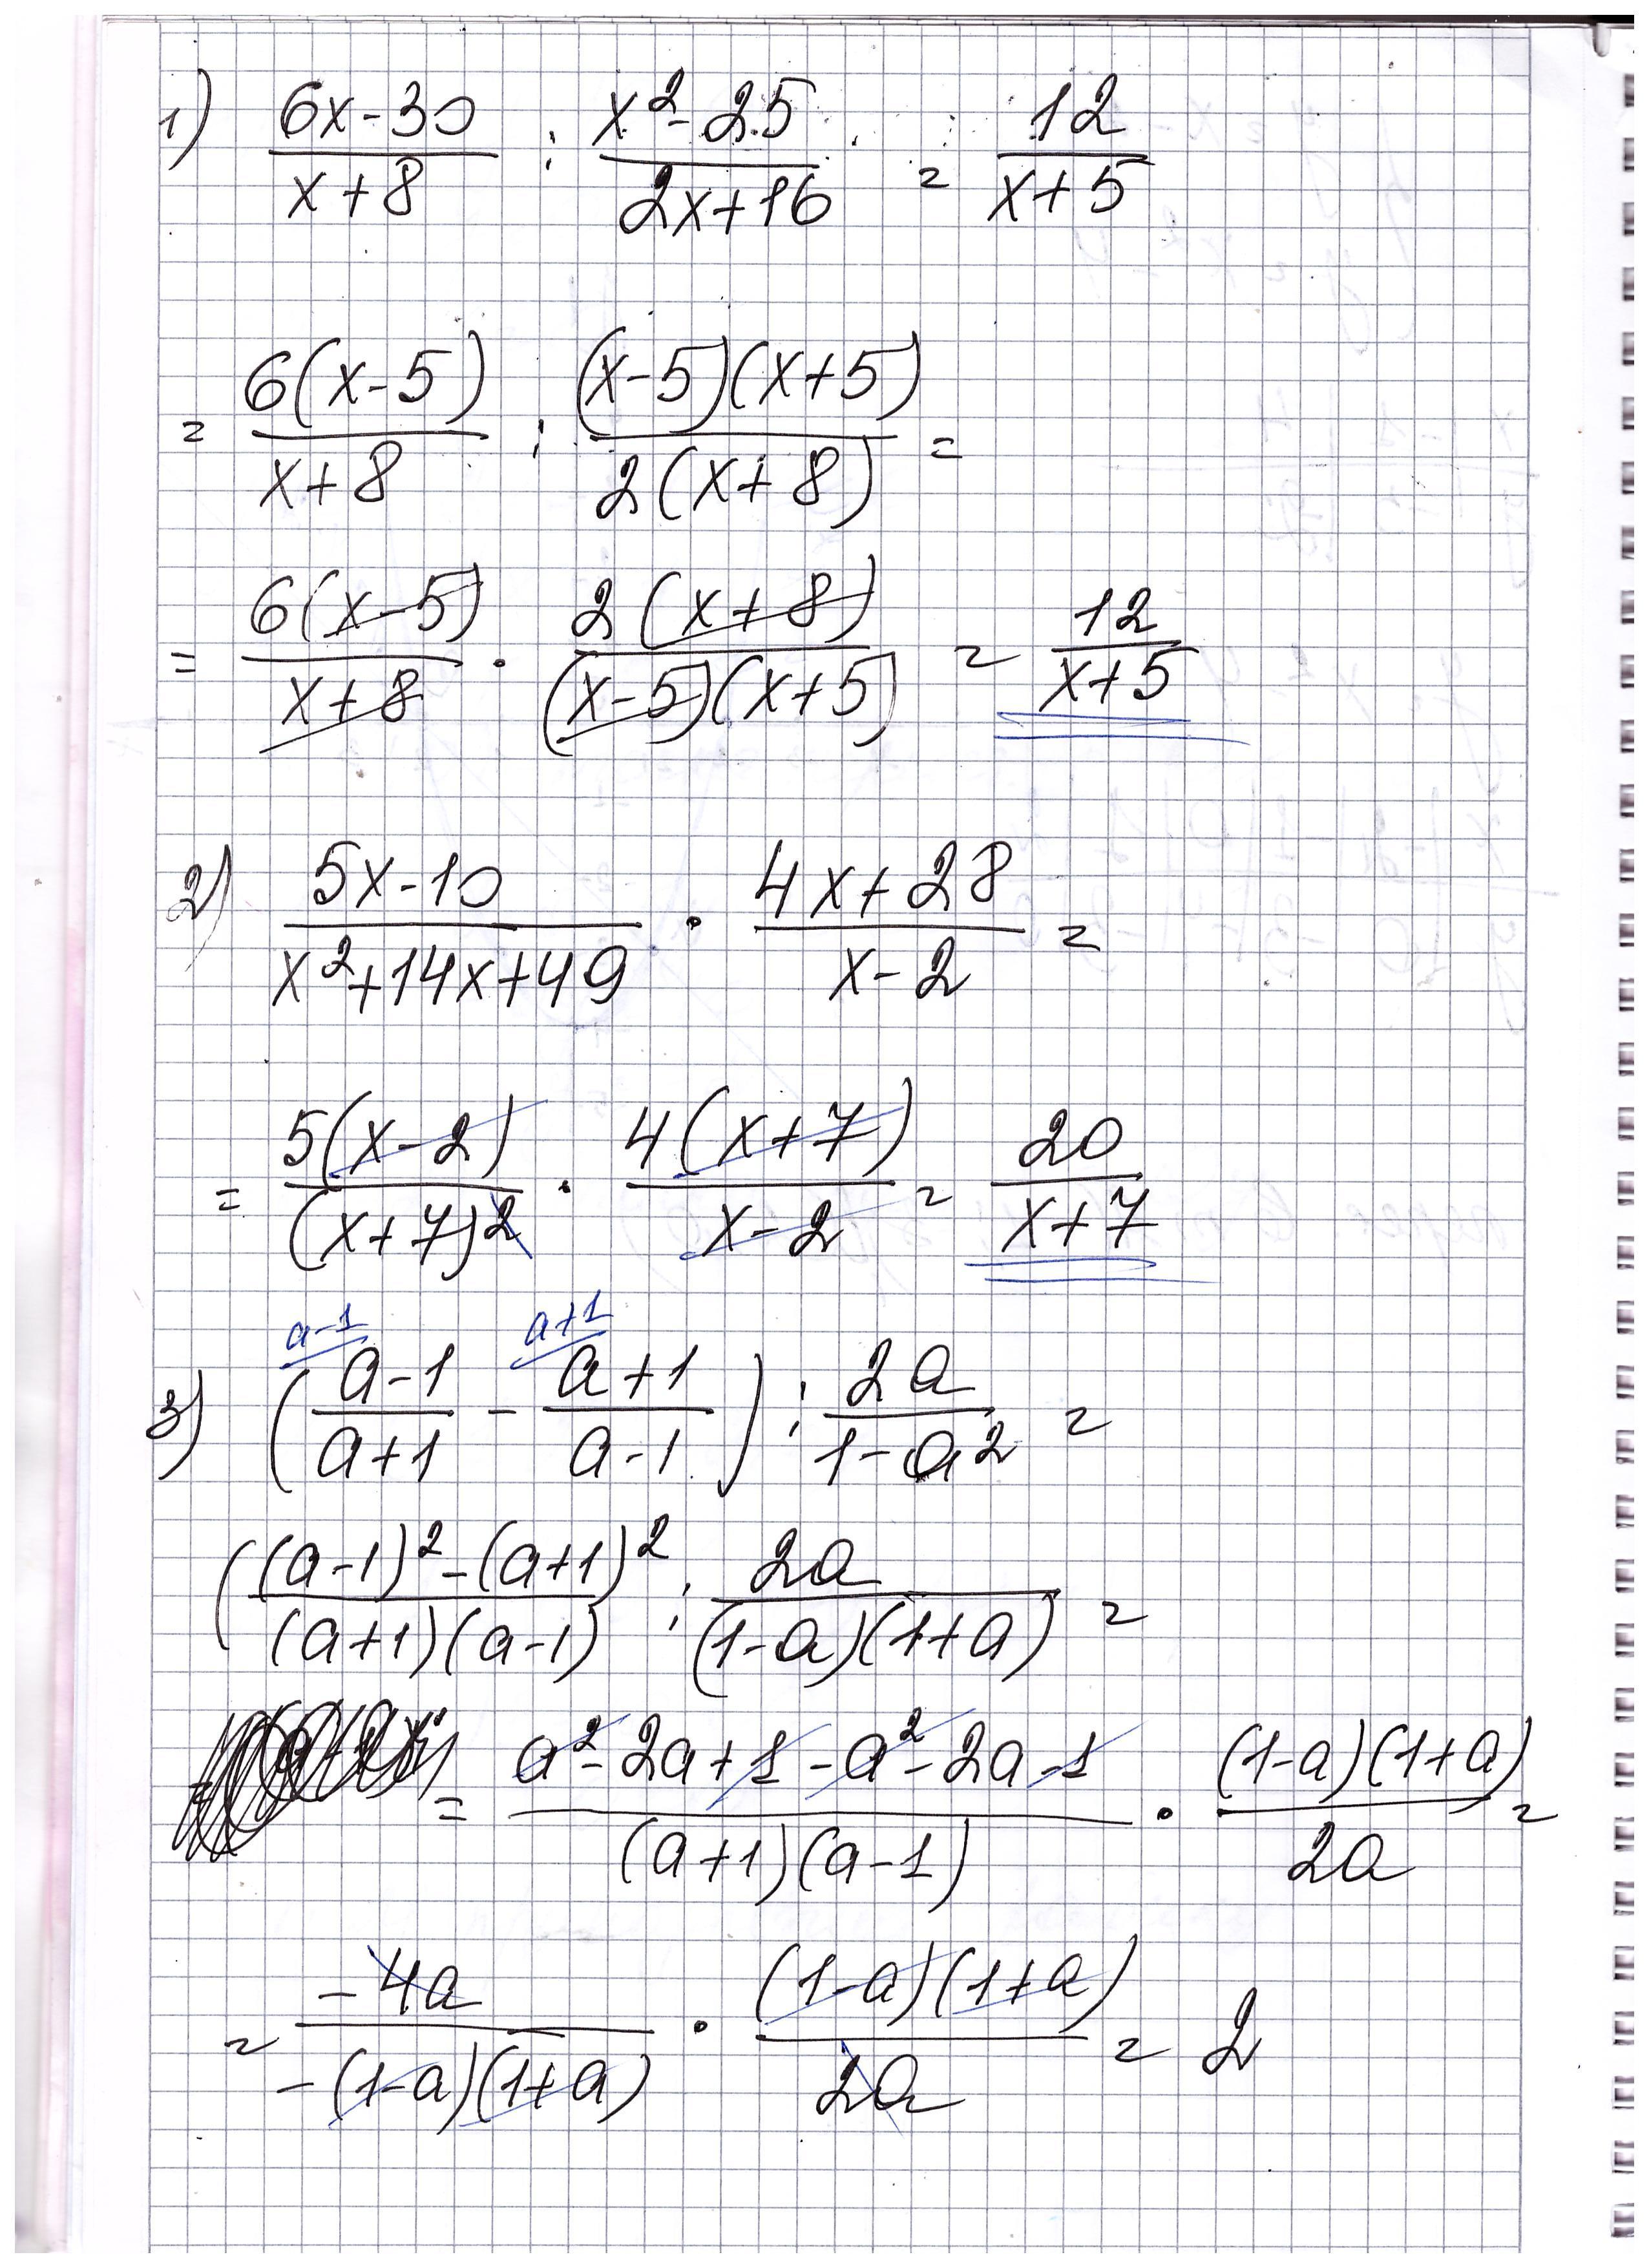 1) (6x-30)/(x+8) : (x²-25)/(2x+16) = 12/(x+5)
= 6(x-5)/(x+8) : (x-5)(x+5)/(2(x+8)) =
= 6(x-5)/(x+8) · 2(x+8)/((x-5)(x+5)) = 12/(x+5)
2) (5x-10)/(x²+14x+49) · (4x+28)/(x-2) =
= 5(x-2)/(x+7)² · 4(x+7)/(x-2) = 20/(x+7)
a-1 a+1
3) ((a-1)/(a+1) - (a+1)/(a-1)) : 2a/(1-a²) =
(((a-1)²-(a+1)²)/((a+1)(a-1)) : 2a/((1-a)(1+a)) =
= (a²-2a+1-a²-2a-1)/((a+1)(a-1)) · (1-a)(1+a)/2a =
= -4a/(-(1-a)(1+a)) · (1-a)(1+a)/2a = 2